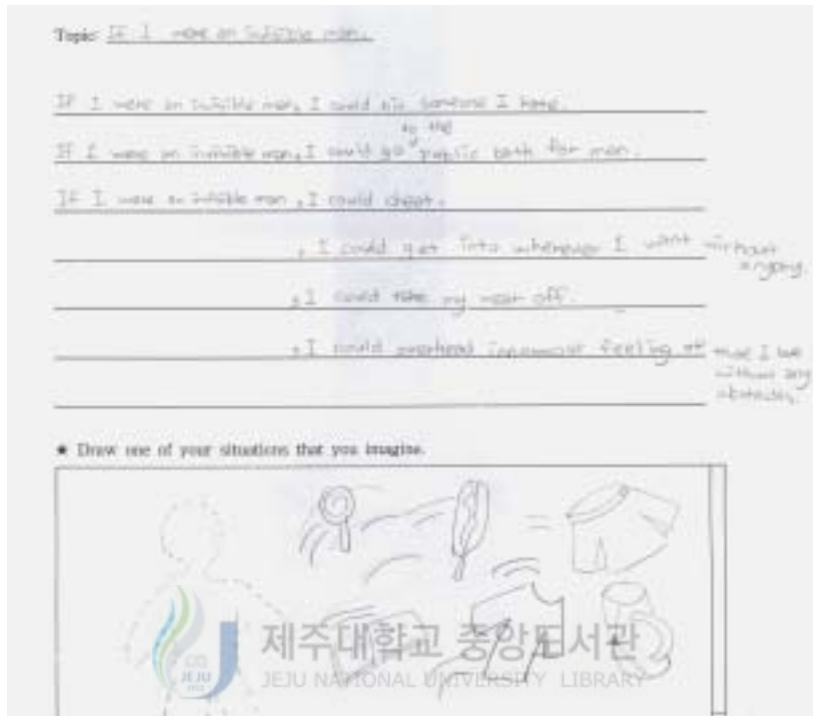 Topic: If I were an invisible man.
If I were an invisible man, I could someone I hate.
to the
If I were an invisible man, I could go public bath for man.
If I were an invisible man, I could cheat.
, I could get into wherever I want without
, I could take my off.
, I could innermost feeling I
without any
obstacles.
★ Draw one of your situations that you imagine.
제주대학교 중앙도서관
JEJU NATIONAL UNIVERSITY LIBRARY
JEJU
1952